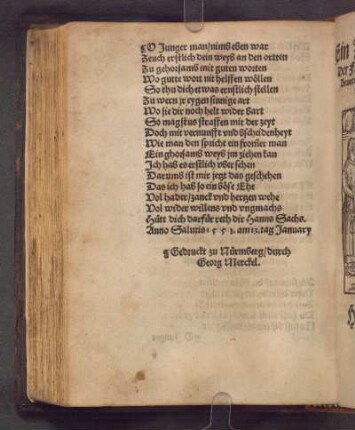 ¶ O Junger man/nims eben war
Zeuch erstlich dein weyb an den orten
Zu gehorsams mit guten worten
Wo gutte wort nit helffen wöllen
So thu dich etwas ernstlich stellen
Zu wern jr eygen sinnige art
Wo sie dir noch helt wider part
So magstus straffen mit der zeyt
Doch mit vernunfft vnd bscheidenheyt
Wie man den spricht ein fromer man
Ein ghorsams weyb jm ziehen kan
Ich hab es erstlich vbersehen
Darumb ist mir jetzt das geschehen
Das ich hab so ein böse Ehe
Vol hader/zanck vnd hertzen wehe
Vol wider willens vnd vngmachs
Hütt dich darfür reth dir Hanns Sachs.
Anno Salutis 1 5 5 3. am 13. tag January
¶ Gedruckt zu Nürmberg/durch
Georg Merckel.
Ein
Der